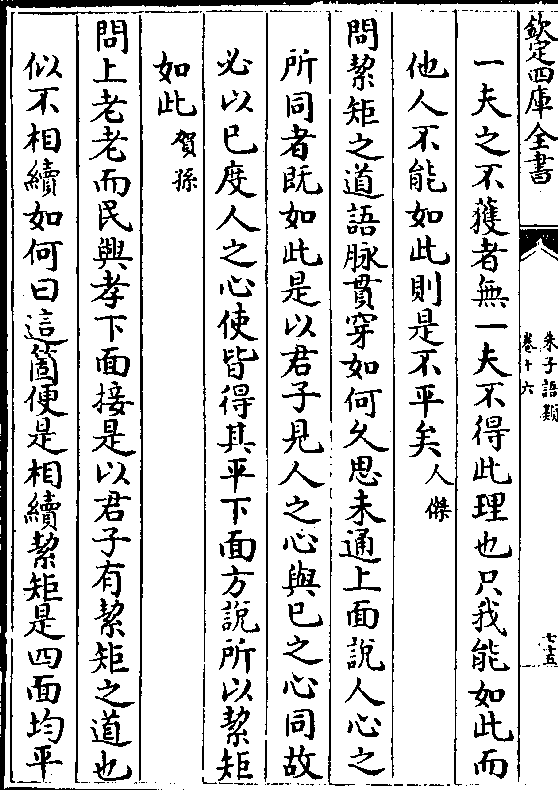 欽定四庫全書
朱子語類
卷十六
七十五
一夫之不獲者無一夫不得此理也只我能如此而
他人不能如此則是不平矣人傑
問絜矩之道語脉貫穿如何久思未通上面說人心之
所同者既如此是以君子見人之心與已之心同故
必以已度人之心使皆得其平下面方說所以絜矩
如此賀孫
問上老老而民興孝下面接是以君子有絜矩之道也
似不相續如何曰這箇便是相續絜矩是四面均平